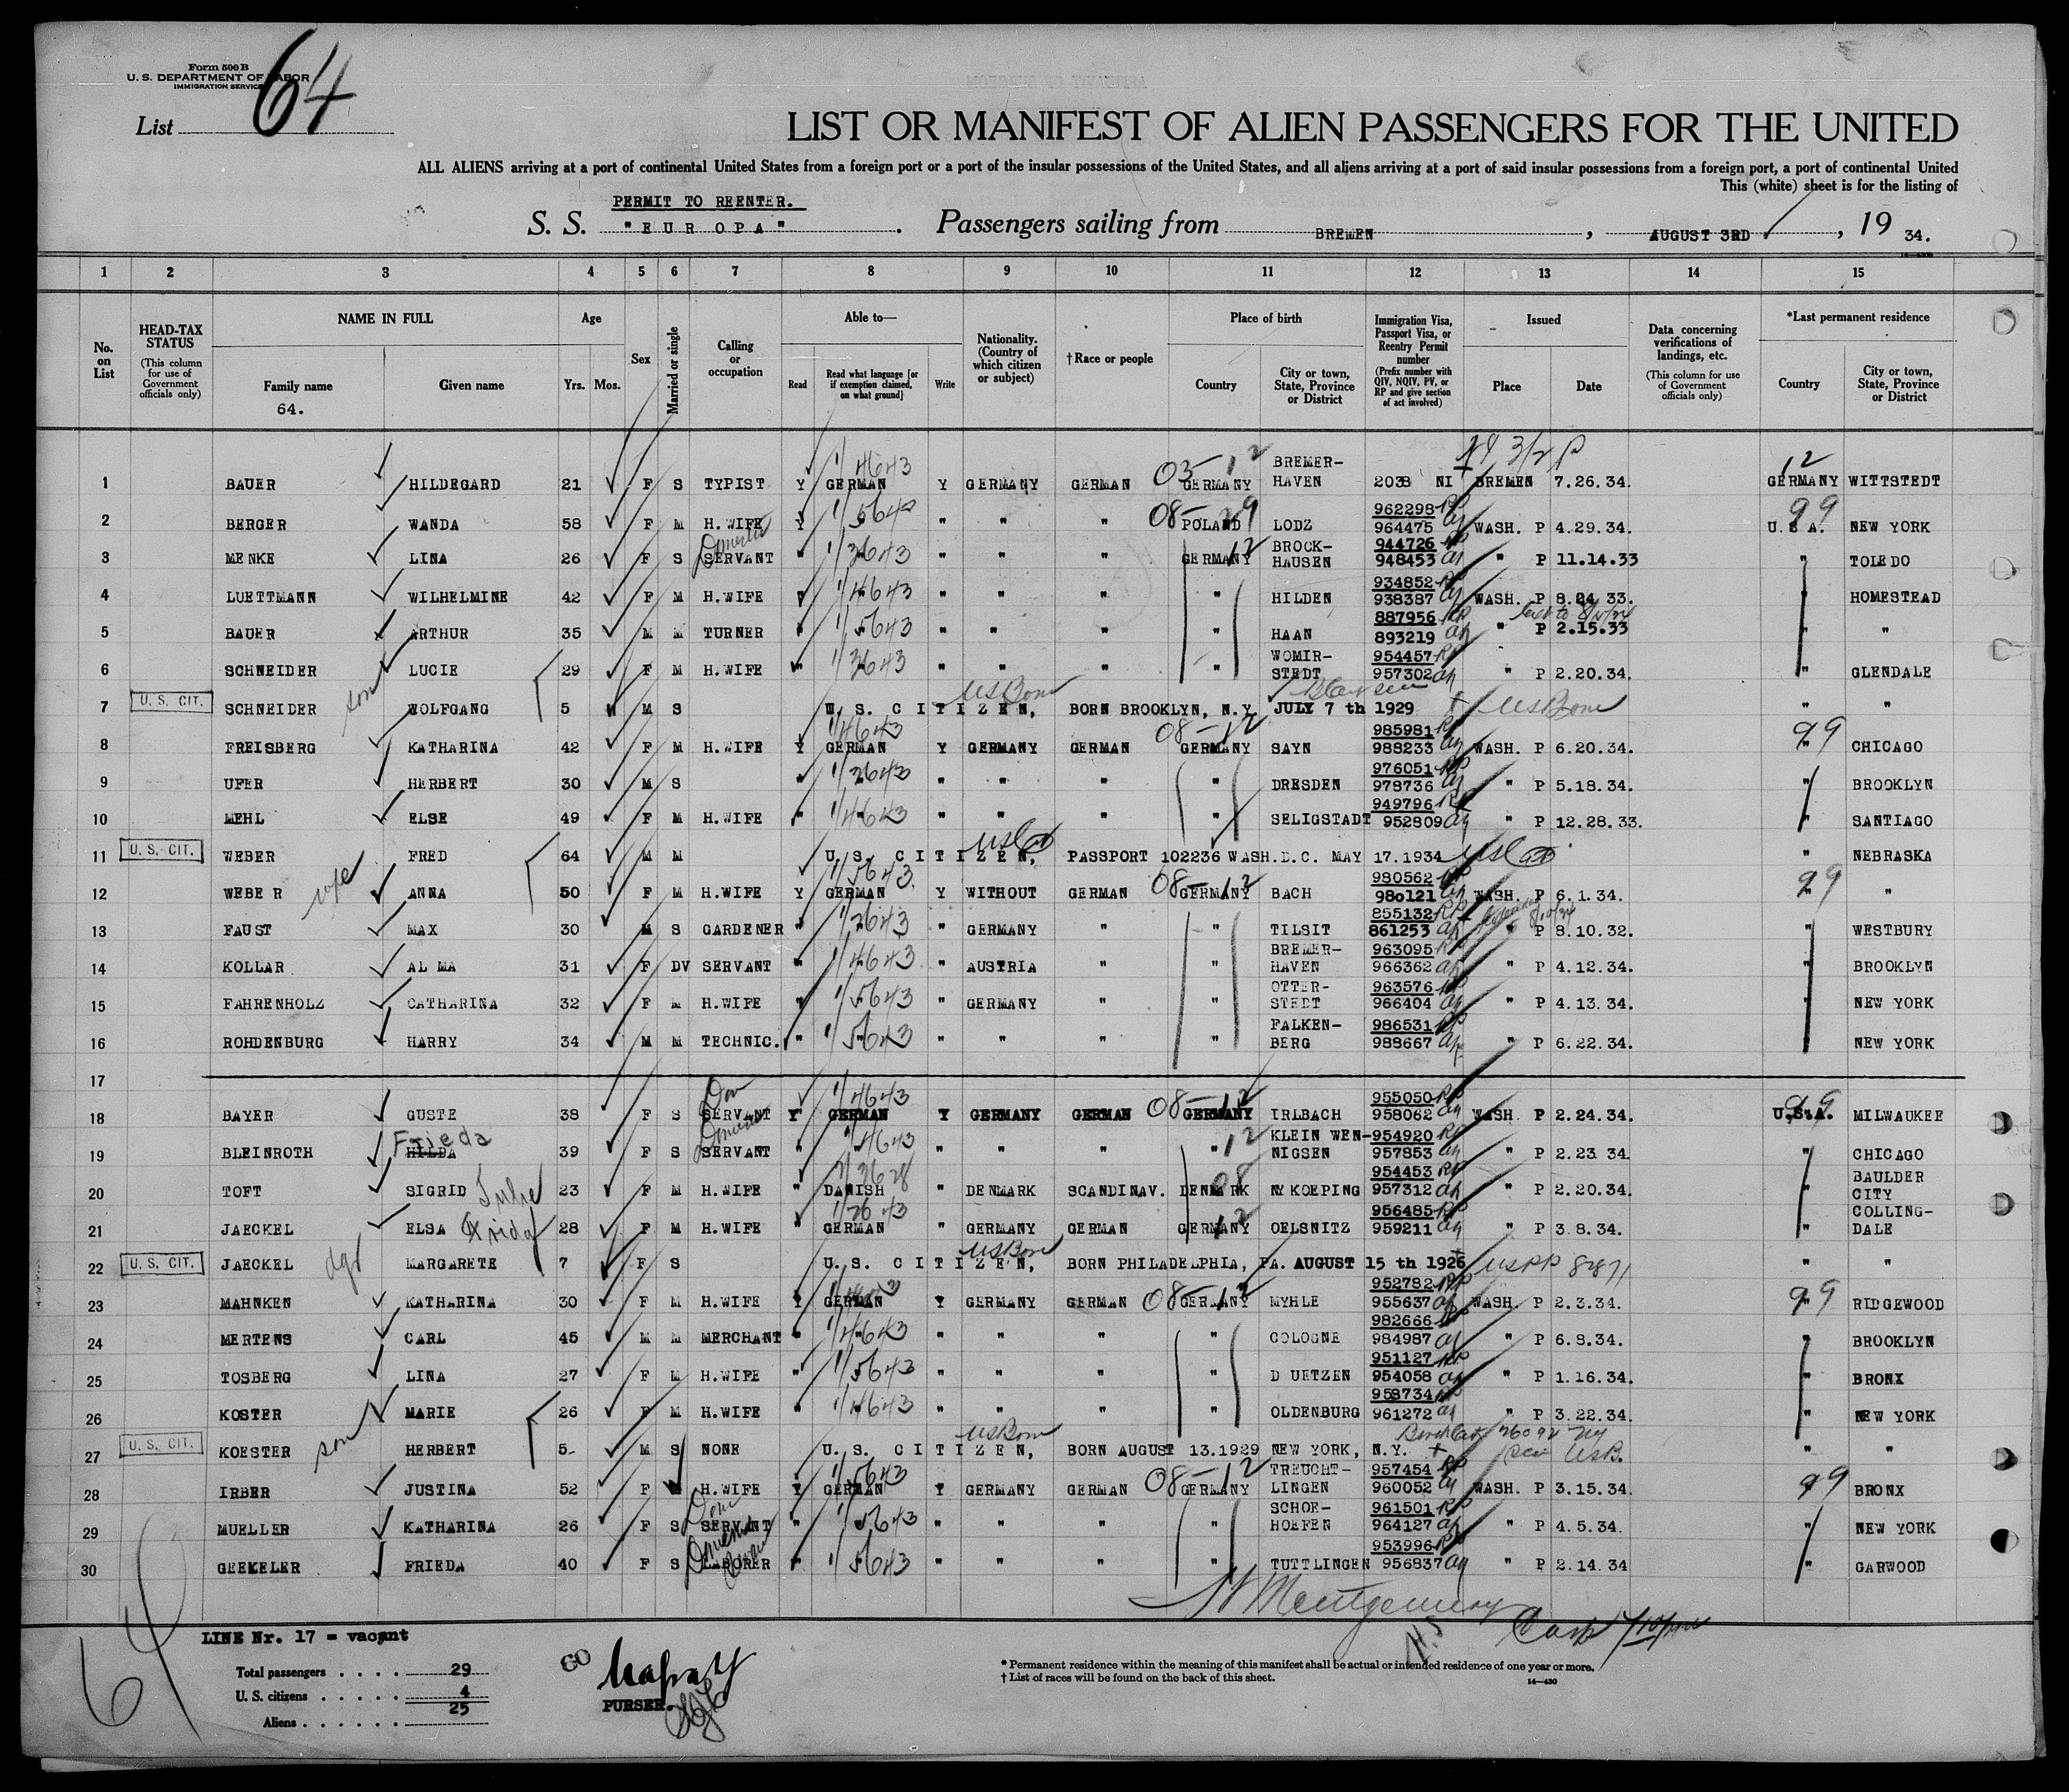 Form 500 B
U. S. DEPARTMENT OF LABOR
IMMIGRATION SERVICE
List 64
LIST OR MANIFEST OF ALIEN PASSENGERS FOR THE UNITED
ALL ALIENS arriving at a port of continental United States from a foreign port or a port of the insular possessions of the United States, and all aliens arriving at a port of said insular possessions from a foreign port, a port of continental United
This (white) sheet is for the listing of
PERMIT TO REENTER.
S. S. "EUROPA". Passengers sailing from BREMEN, AUGUST 3RD, 19 34.
1 2 3 4 5 6 7 8 9 10 11 12 13 14 15
No. on List
HEAD-TAX STATUS (This column for use of Government officials only)
NAME IN FULL Family name Given name
64.
Age Yrs. Mos.
Sex
Married or single
Calling or occupation
Able to— Read Read what language [or if exemption claimed, on what ground] Write
Nationality. (Country of which citizen or subject)
† Race or people
Place of birth Country City or town, State, Province or District
Immigration Visa, Passport Visa, or Reentry Permit number (Prefix number with QIV, NQIV, PV, or RP and give section of act involved)
Issued Place Date
Data concerning verifications of landings, etc. (This column for use of Government officials only)
*Last permanent residence Country City or town, State, Province or District
1 BAUER HILDEGARD 21 F S TYPIST Y GERMAN 1/4643 Y GERMANY GERMAN 03-12 GERMANY BREMER-HAVEN 2038 NI BREMEN 7.26.34. 12 GERMANY WITTSTEDT
2 BERGER WANDA 58 F M H.WIFE Y " 1/5643 " " " 08-29 POLAND LODZ 962298 RP 964475 WASH. P 4.29.34. 99 U.S A. NEW YORK
3 MENKE LINA 26 F S SERVANT " " 1/3643 " " " 12 GERMANY BROCK-HAUSEN 944726 RP 948453 " P 11.14.33 " TOLEDO
4 LUETTMANN WILHELMINE 42 F M H.WIFE " " 1/4643 " " " " HILDEN 934852 RP 938387 WASH. P 8.24 33. " HOMESTEAD
5 BAUER ARTHUR 35 M M TURNER " " 1/5643 " " " " HAAN 887956 RP 893219 " P 2.15.33 " "
6 SCHNEIDER LUCIE 29 F M H.WIFE " " 1/3643 " " " " WOMIR-STEDT 954457 RP 957302 " P 2.20.34. " GLENDALE
7 U. S. CIT. SCHNEIDER son WOLFGANG 5 M S U. S. CITIZEN, US Born BORN BROOKLYN, N.Y. JULY 7 th 1929 US Born " "
8 FREISBERG KATHARINA 42 F M H.WIFE Y GERMAN 1/4643 Y GERMANY GERMAN 08-12 GERMANY SAYN 985981 RP 988233 WASH. P 6.20.34. 99 " CHICAGO
9 UFER HERBERT 30 M S " " 1/3643 " " " " DRESDEN 976051 RP 978736 " P 5.18.34. " BROOKLYN
10 MEHL ELSE 49 F M H.WIFE " " 1/4643 " " " " SELIGSTADT 949796 RP 952809 " P 12.28.33. " SANTIAGO
11 U. S. CIT. WEBER FRED 64 M M U. S. CITIZEN, PASSPORT 102236 WASH.D.C. MAY 17.1934 " NEBRASKA
12 WEBER wife ANNA 50 F M H.WIFE Y GERMAN 1/5643 Y WITHOUT GERMAN 08-12 GERMANY BACH 980562 RP 980121 WASH. P 6.1.34. 99 " "
13 FAUST MAX 30 M S GARDENER " " 1/3643 " GERMANY " " TILSIT 855132 RP 861253 " P 8.10.32. " WESTBURY
14 KOLLAR ALMA 31 F DV SERVANT " " 1/4643 " AUSTRIA " " BREMER-HAVEN 963095 RP 966362 " P 4.12.34. " BROOKLYN
15 FAHRENHOLZ CATHARINA 32 F M H.WIFE " " 1/5643 " GERMANY " " OTTER-STEDT 963576 RP 966404 " P 4.13.34. " NEW YORK
16 ROHDENBURG HARRY 34 M M TECHNIC. " " 1/5643 " " " " FALKEN-BERG 986531 RP 988667 " P 6.22.34. " NEW YORK
17
18 BAYER GUSTE 38 F S SERVANT Dom Y GERMAN 1/4643 Y GERMANY GERMAN 08-12 GERMANY IRLBACH 955050 RP 958062 WASH. P 2.24.34. 99 U.S.A. MILWAUKEE
19 BLEINROTH HILDA Frieda 39 F S SERVANT " " 1/4643 " " " 12 " KLEIN WEN-NIGSEN 954920 RP 957853 " P 2.23 34. " CHICAGO
20 TOFT SIGRID 23 F M H.WIFE " DANISH " DENMARK SCANDINAV. 08 DENMARK NYKOEPING 954453 RP 957312 " P 2.20.34. " BAULDER CITY
21 JAECKEL ELSA Frida 28 F M H.WIFE " GERMAN " GERMANY GERMAN 12 GERMANY OELSNITZ 956485 RP 959211 " P 3.8.34. " COLLING-DALE
22 U. S. CIT. JAECKEL dgt MARGARETE 7 F S U. S. CITIZEN, US Born BORN PHILADELPHIA, PA. AUGUST 15 th 1926 " "
23 MAHNKEN KATHARINA 30 F M H.WIFE Y GERMAN Y GERMANY GERMAN 08-12 GERMANY MYHLE 952782 RP 955637 WASH. P 2.3.34. 99 " RIDGEWOOD
24 MERTENS CARL 45 M M MERCHANT " " 1/4643 " " " " COLOGNE 982666 RP 984987 " P 6.8.34. " BROOKLYN
25 TOSBERG LINA 27 F M H.WIFE " " 1/5643 " " " " DUETZEN 951127 RP 954058 " P 1.16.34. " BRONX
26 KOSTER MARIE 26 F M H.WIFE " " 1/4643 " " " " OLDENBURG 958734 RP 961272 " P 3.22.34. " NEW YORK
27 U. S. CIT. KOESTER son HERBERT 5 M S NONE U. S. CITIZEN, US Born BORN AUGUST 13.1929 NEW YORK, N.Y. " "
28 IRBER JUSTINA 52 F H.WIFE Y GERMAN 1/5643 Y GERMANY GERMAN 08-12 GERMANY TREUCHT-LINGEN 957454 RP 960052 WASH. P 3.15.34. 99 BRONX
29 MUELLER KATHARINA 26 F S SERVANT Dom " " 1/5643 " " " " SCHOE-HOEFEN 961501 RP 964127 " P 4.5.34. " NEW YORK
30 GEEKELER FRIEDA 40 F S LABORER " " 1/5643 " " " " TUTTLINGEN 953996 RP 956837 " P 2.14.34 " GARWOOD
Montgomery
LINE Nr. 17 = vacant
Total passengers . . . . 29
U. S. citizens . . . . . 4
Aliens . . . . . . 25
64
60
PURSER.
* Permanent residence within the meaning of this manifest shall be actual or intended residence of one year or more.
† List of races will be found on the back of this sheet.
14—430